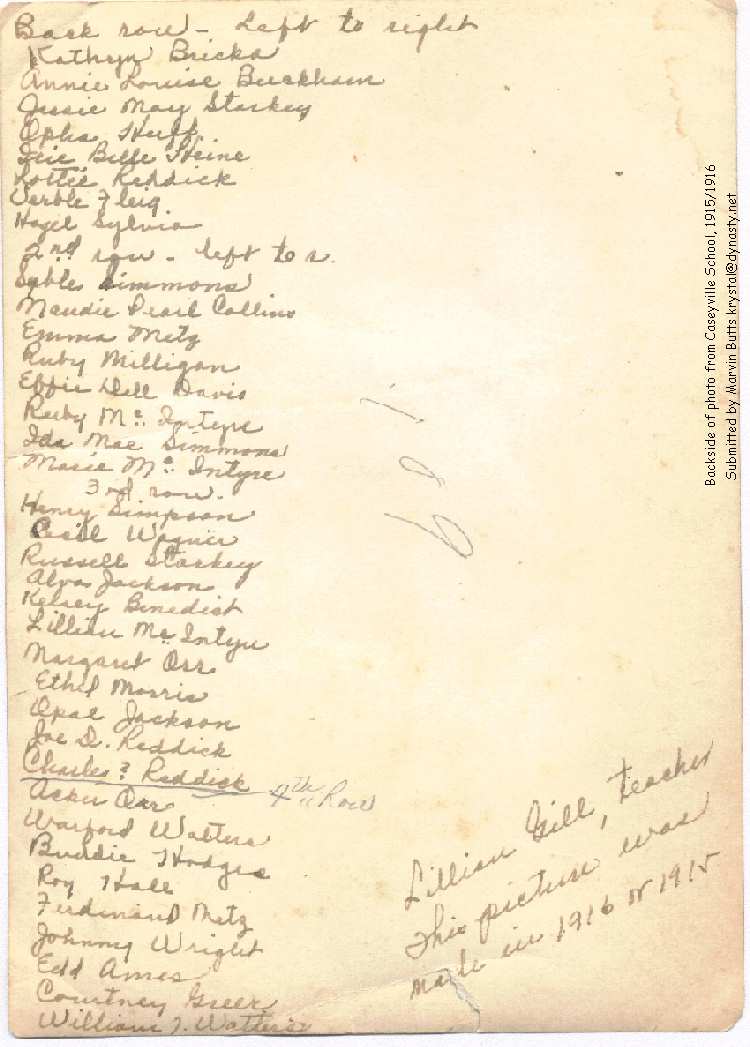 Back row - Left to right
Kathryn Bricka
Annie Louise Buckham
Jessie May Starkey
Opha Huff
Irie Bille Heine
Lottie Reddick
Verble Fleig
Hazel Sylvia
2nd row - left to r.
Syble Simmons
Maudie Pearl Collins
Emma Metz
Ruby Milligan
Effie Dell Davis
Ruby Mc Intyre
Ida Mae Simmons
Marie Mc Intyre
3rd row.
Henry Simpson
Cecil Wagner
Russell Starkey
Alva Jackson
Kelsey Benedict
Lillian Mc Intyre
Margaret Orr
Ethel Morris
Opal Jackson
Joe D. Reddick
Charles ? Reddick 4th Row
Acker Orr
Warford Watters
Buddie Hodges
Roy Hale
Ferdinand Metz
Johnny Wright
Edd Ames
Courtney Greer
William J. Watters
189
Lillian Gill, teacher
This picture was
made in 1916 or 1915
Backside of photo from Caseyville School, 1915/1916
Submitted by Marvin Butts krystal@dynasty.net